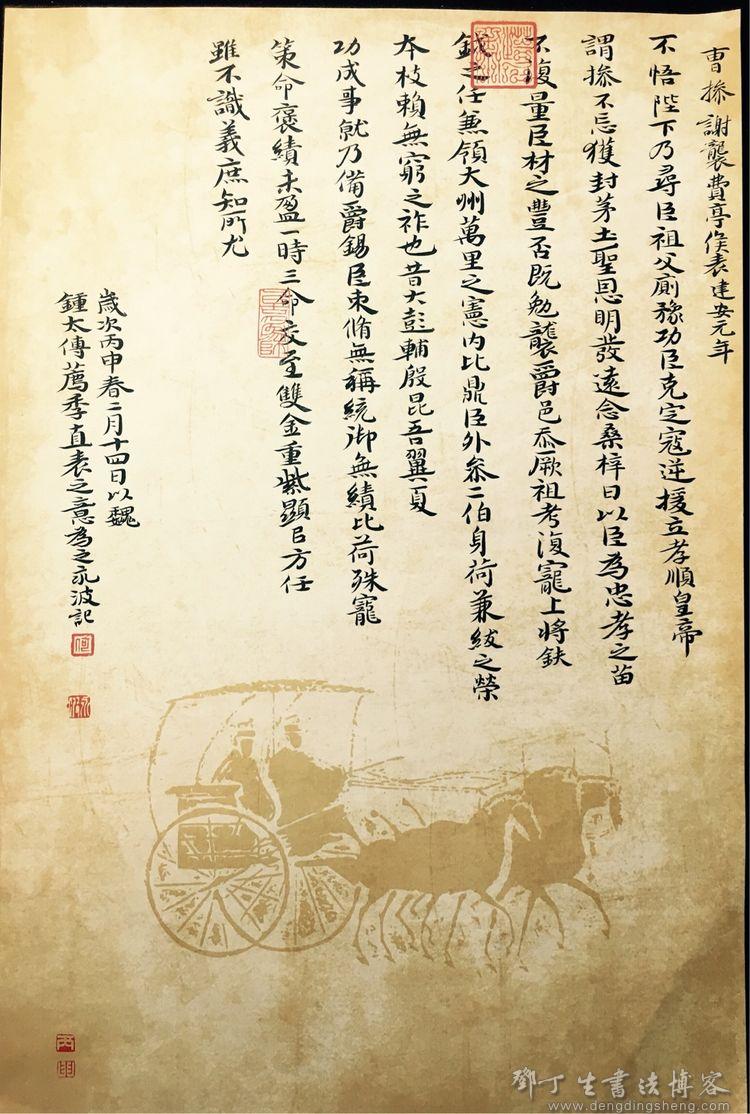 曹操謝襲費亭侯表建安元年
不悟陛下乃尋臣祖父廁豫功臣克定寇逆援立孝順皇帝
謂操不忘獲封茅土聖恩明發遠念桑梓日以臣為忠孝之苗
不復量臣材之豐否既勉襲爵邑忝厥祖考復寵上將鈇
鉞之任兼領大州萬里之憲內比鼎臣外參二伯身荷兼紱之榮
本枝賴無窮之祚也昔大彭輔殷昆吾翼夏
功成事就乃備爵錫臣束脩無稱統御無績比荷殊寵
策命褒績未盈一時三命交至雙金重紫顯㠯方任
雖不識義庶知所尤
歲次丙申春二月十四日以魏
鍾太傅薦季直表之意為之永波記
鄧丁生書法博客
www.dengdingsheng.com